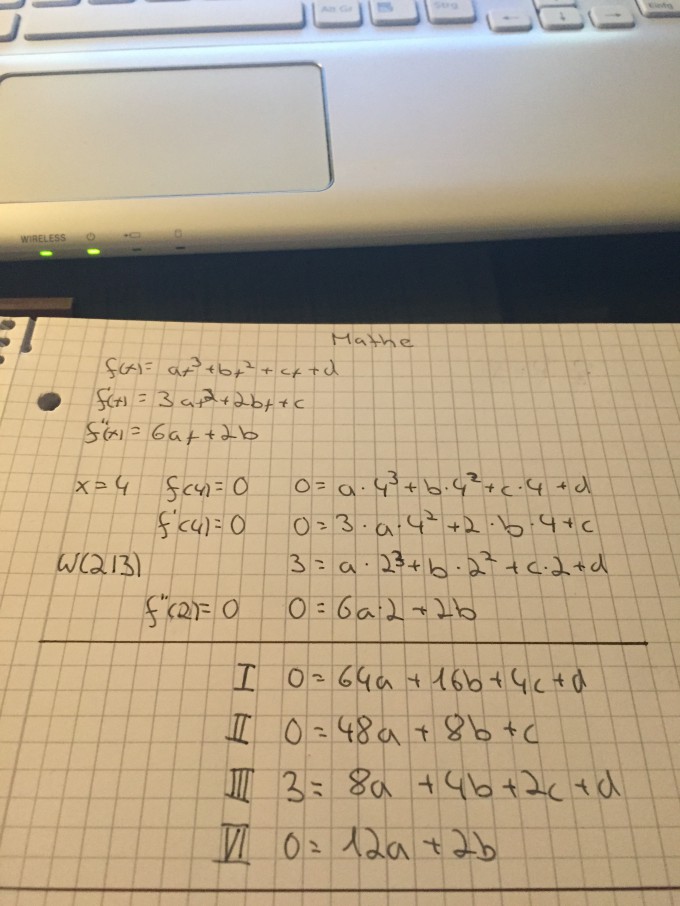 Alt Gr
Strg
←
↓
→
Einfg
WIRELESS
Mathe
f(x) = ax³ + bx² + cx + d
f'(x) = 3ax² + 2bx + c
f"(x) = 6ax + 2b
x = 4 f(4) = 0 0 = a · 4³ + b · 4² + c · 4 + d
f'(4) = 0 0 = 3 · a · 4² + 2 · b · 4 + c
W(2|3) 3 = a · 2³ + b · 2² + c · 2 + d
f"(2) = 0 0 = 6a · 2 + 2b
I 0 = 64a + 16b + 4c + d
II 0 = 48a + 8b + c
III 3 = 8a + 4b + 2c + d
VI 0 = 12a + 2b